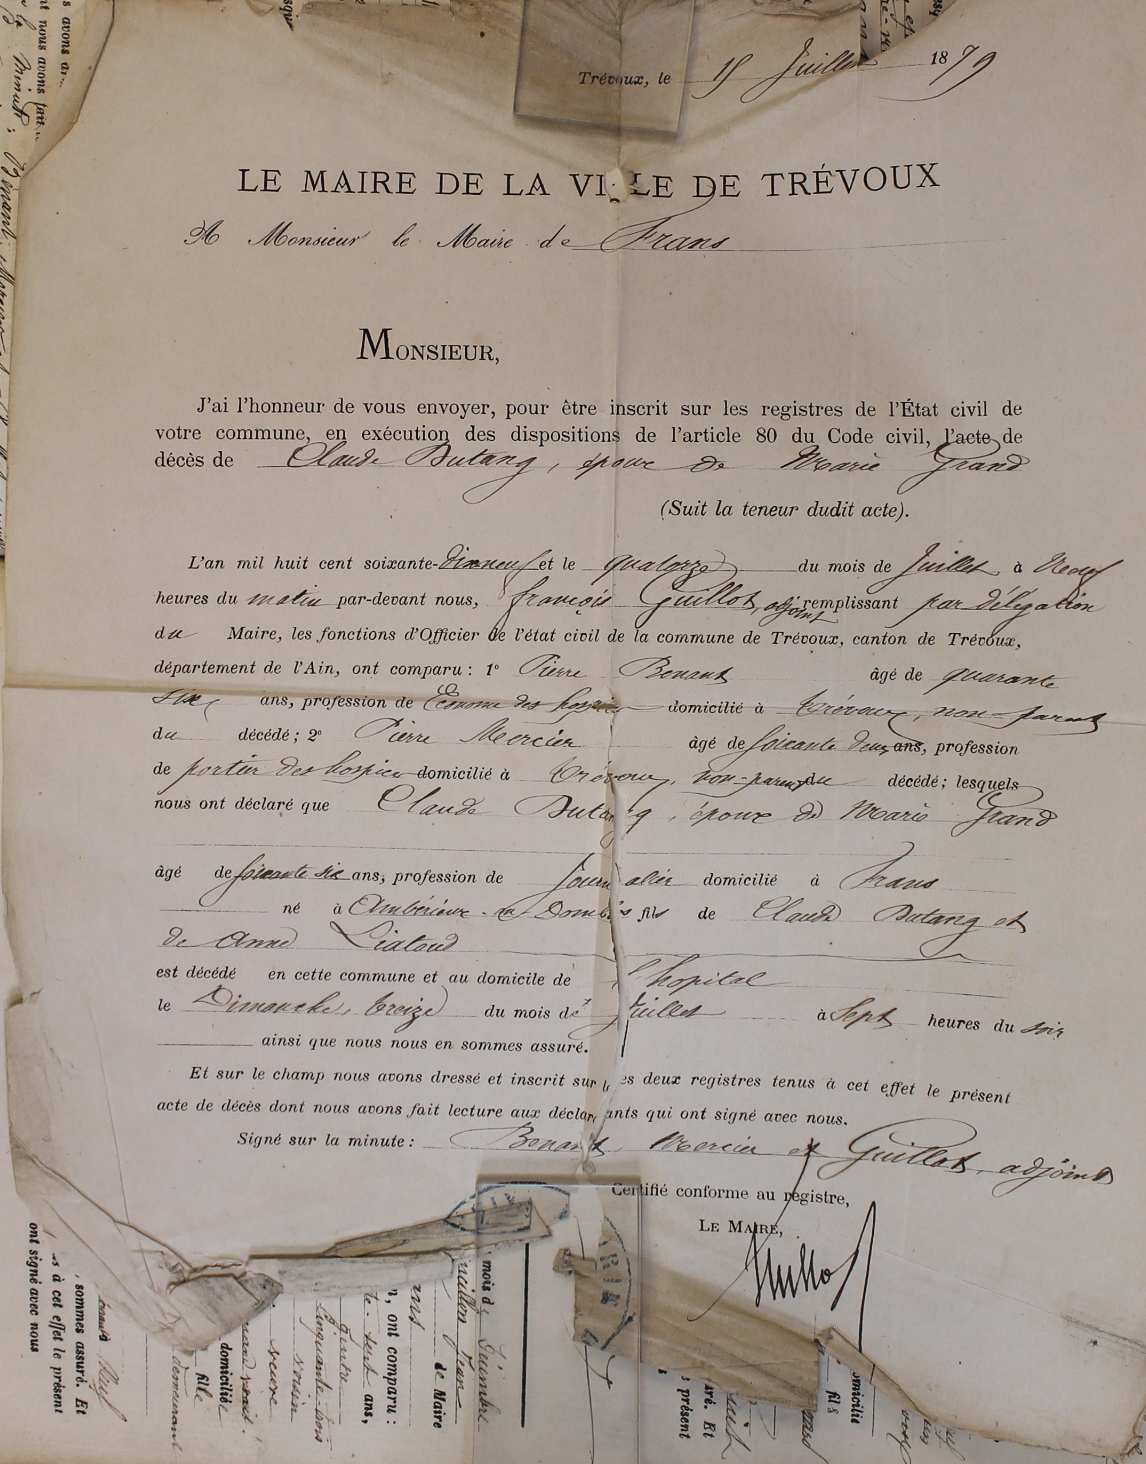 Trévoux, le 15 Juillet 1879
LE MAIRE DE LA VILLE DE TRÉVOUX
A Monsieur le Maire de Frans
MONSIEUR,
J'ai l'honneur de vous envoyer, pour être inscrit sur les registres de l'État civil de
votre commune, en exécution des dispositions de l'article 80 du Code civil, l'acte de
décès de Claude Dutang, époux de Marie Grand
(Suit la teneur dudit acte).
L'an mil huit cent soixante-dixneuf et le quatorze du mois de Juillet à Neuf
heures du matin par-devant nous, françois Guillot, adjoint remplissant par délégation
du Maire, les fonctions d'Officier de l'état civil de la commune de Trévoux, canton de Trévoux,
département de l'Ain, ont comparu : 1° Pierre Benant âgé de quarante
six ans, profession de Econome des hospices domicilié à Trévoux, non-parent
du décédé ; 2° Pierre Mercier âgé de soixante deux ans, profession
de portier des hospices domicilié à Trévoux, non-parent du décédé ; lesquels
nous ont déclaré que Claude Dutang, époux de Marie Grand
âgé de soixante six ans, profession de Journalier domicilié à Frans
né à Ambérieux-en-Dombes fils de Claude Dutang et
de Anne Liatoud
est décédé en cette commune et au domicile de l'hopital
le Dimanche, treize du mois de Juillet à Sept heures du soir
ainsi que nous nous en sommes assuré.
Et sur le champ nous avons dressé et inscrit sur les deux registres tenus à cet effet le présent
acte de décès dont nous avons fait lecture aux déclarants qui ont signé avec nous.
Signé sur la minute : Benant, Mercier et Guillot, adjoint
Certifié conforme au registre,
LE MAIRE,
Guillot
mois de
de Maire
n, ont comparu :
ans,
domicilié
fille
demeurant
sommes assuré. Et
s à cet effet le présent
ont signé avec nous
omicilié
fils
uré. Et
présent